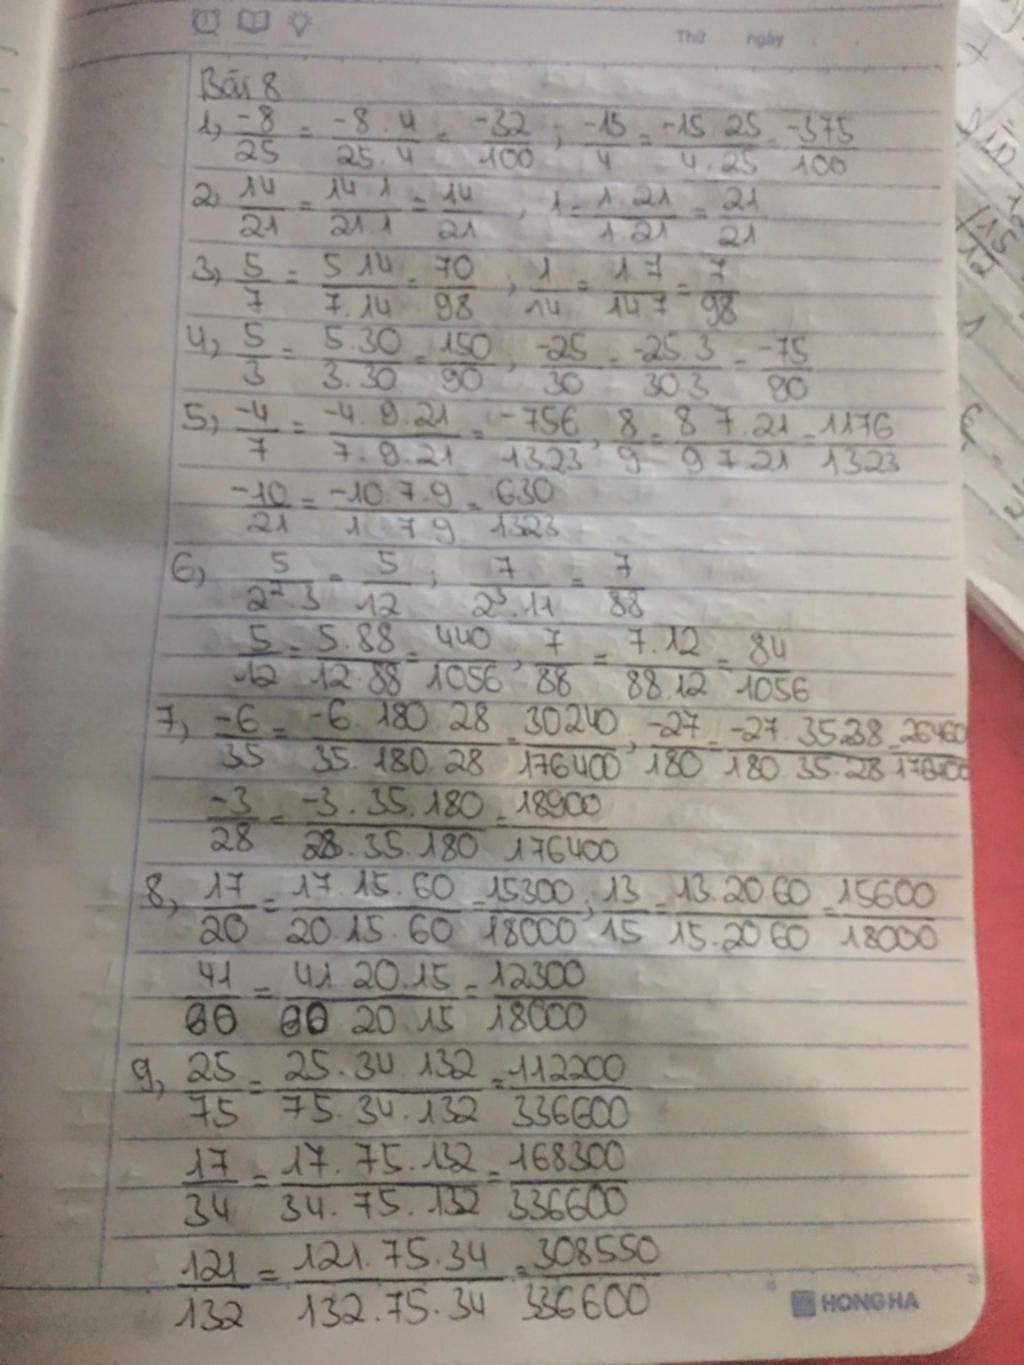 Thứ ngày
Bài 8
1, -8/25 = -8.4/25.4 = -32/100 ; -15/4 = -15.25/4.25 = -375/100
2, 14/21 = 14.1/21.1 = 14/21 , 1 = 1.21/1.21 = 21/21
3, 5/7 = 5.14/7.14 = 70/98 , 1/14 = 1.7/14.7 = 7/98
4, 5/3 = 5.30/3.30 = 150/90 , -25/30 = -25.3/30.3 = -75/90
5, -4/7 = -4.9.21/7.9.21 = -756/1323 , 8/9 = 8.7.21/9.7.21 = 1176/1323
-10/21 = -10.7.9/1 7 9 = 630/1323
6, 5/2².3 = 5/12 ; 7/2³.11 = 7/88
5/12 = 5.88/12.88 = 440/1056 , 7/88 = 7.12/88.12 = 84/1056
7, -6/35 = -6.180.28/35.180.28 = 30240/176400 , -27/180 = -27.35.28/180.35.28 = 26460/176400
-3/28 = -3.35.180/28.35.180 = 18900/176400
8, 17/20 = 17.15.60/20.15.60 = 15300/18000 ; 13/15 = 13.20.60/15.20.60 = 15600/18000
41/60 = 41.20.15/60.20.15 = 12300/18000
9, 25/75 = 25.34.132/75.34.132 = 112200/336600
17/34 = 17.75.132/34.75.132 = 168300/336600
121/132 = 121.75.34/132.75.34 = 308550/336600
HONG HA